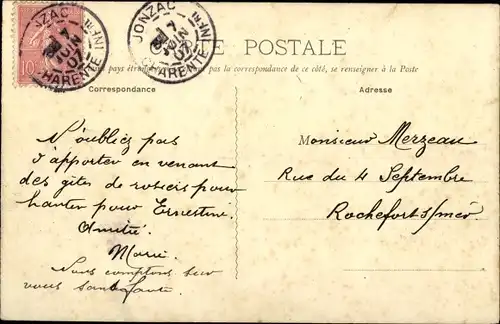 JONZAC
7
JUIN
07
CHARENTE INFRE
JONZAC
7
JUIN
07
CHARENTE INFRE
10
POSTALE
pas la correspondance de ce côté, se renseigner à la Poste
Correspondance
Adresse
N'oubliez pas
d'apporter en venant
des gites de rosiers pour
planter pour Ernestine.
Amitié.
Marie.
Nous comptons sur
vous sans faute.
Monsieur Merzeau
Rue du 4 Septembre
Rochefort s/mer